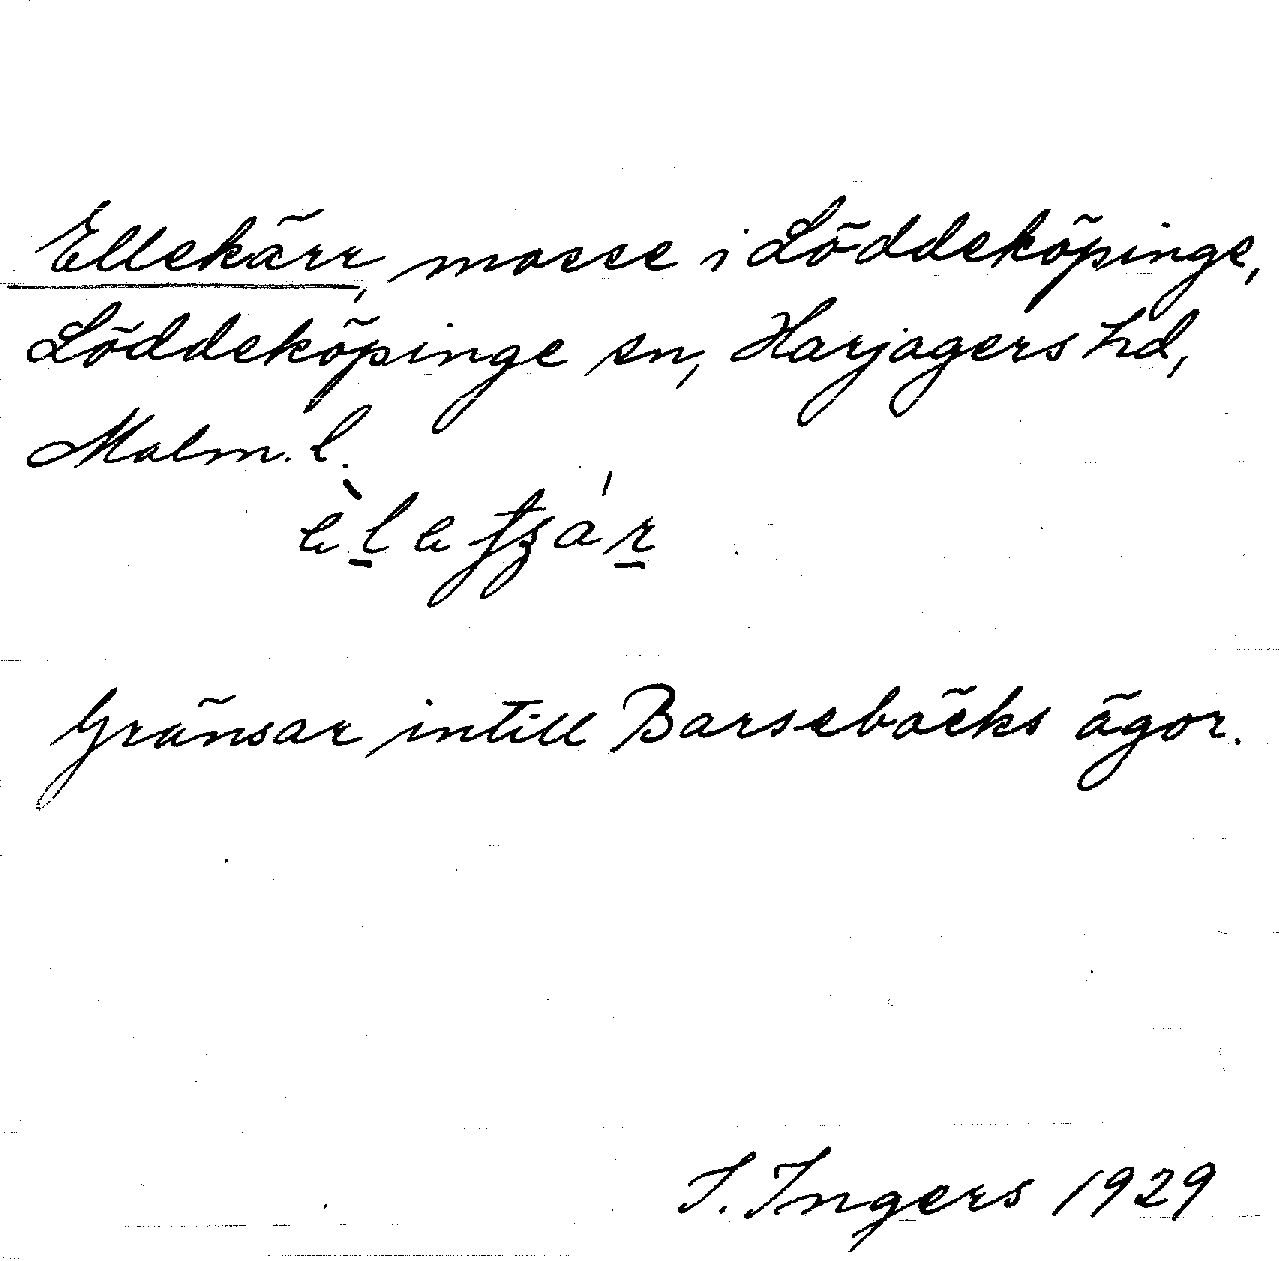 Ellekärr, mosse i Löddeköpinge,
Löddeköpinge sn, Harjagers hd,
Malm. l.
Gränsar intill Barsebäcks ägor.
I. Ingers 1929